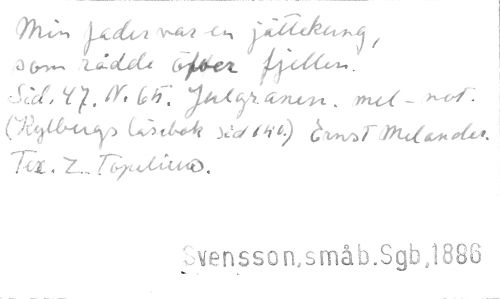 Min fader var en jättekung,
som rådde öfver fjellen.
Sid. 47. N. 65. Julgranen. mel-not.
(Kylbergs läsebok sid 140.) Ernst Melander.
Tex. Z. Topelius.
Svensson,småb.Sgb,1886